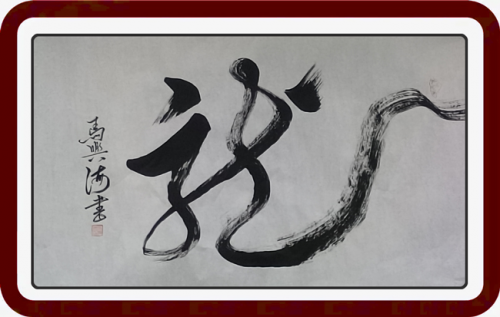 龍
馬興海書